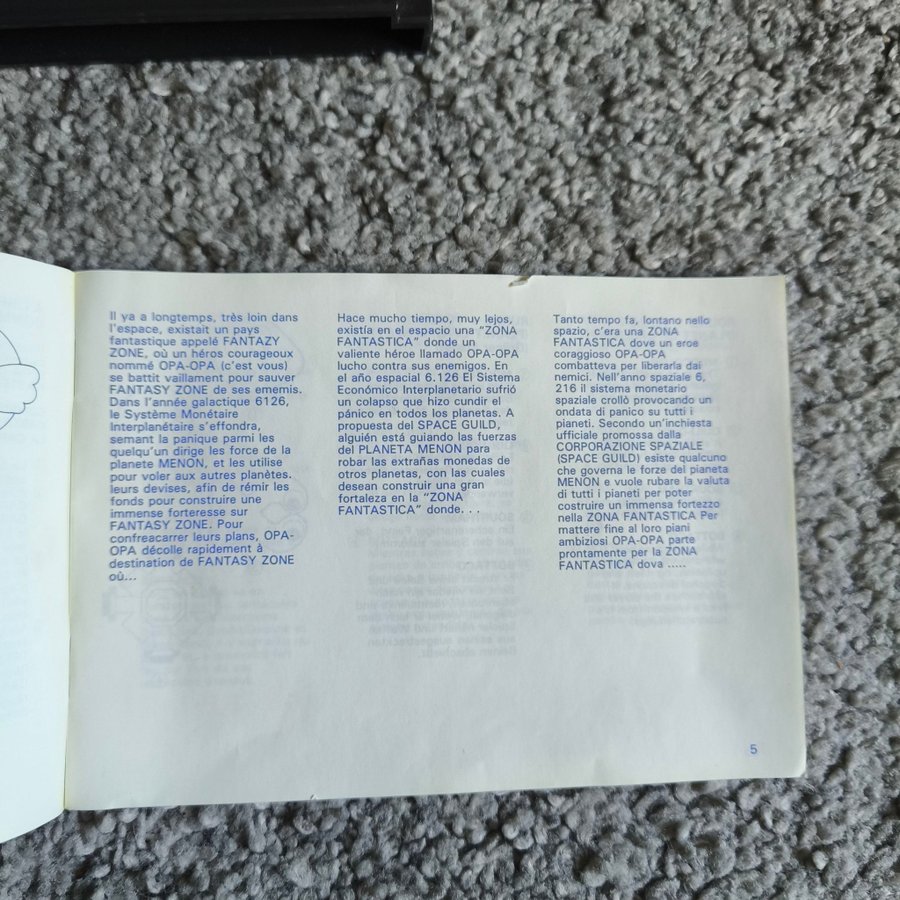 Il ya a longtemps, très loin dans
l'espace, existait un pays
fantastique appelé FANTAZY
ZONE, où un héros courageoux
nommé OPA-OPA (c'est vous)
se battit vaillament pour sauver
FANTASY ZONE de ses ememis.
Dans l'année galactique 6126,
le Système Monétaire
Interplanétaire s'effondra,
semant la panique parmi les
quelqu'un dirige les force de la
planete MENON, et les utilise
pour voler aux autres planètes.
leurs devises, afin de rémir les
fonds pour construire une
immense forteresse sur
FANTASY ZONE. Pour
confreacarrer leurs plans, OPA-
OPA décolle rapidement à
destination de FANTASY ZONE
où...
Hace mucho tiempo, muy lejos,
existía en el espacio una "ZONA
FANTASTICA" donde un
valiente héroe llamado OPA-OPA
lucho contra sus enemigos. En
el año espacial 6.126 El Sistema
Económico Interplanetario sufrió
un colapso que hizo cundir el
pánico en todos los planetas. A
propuesta del SPACE GUILD,
alguién está guiando las fuerzas
del PLANETA MENON para
robar las extrañas monedas de
otros planetas, con las cuales
desean construir una gran
fortaleza en la "ZONA
FANTASTICA" donde. . .
Tanto tempo fa, lontano nello
spazio, c'era una ZONA
FANTASTICA dove un eroe
coraggioso OPA-OPA
combatteva per liberarla dai
nemici. Nell'anno spaziale 6,
216 il sistema monetario
spaziale crollò provocando un
ondata di panico su tutti i
pianeti. Secondo un'inchiesta
ufficiale promossa dalla
CORPORAZIONE SPAZIALE
(SPACE GUILD) esiste qualcuno
che governa le forze del pianeta
MENON e vuole rubare la valuta
di tutti i pianeti per poter
costruire un immensa fortezzo
nella ZONA FANTASTICA Per
mattere fine al loro piani
ambiziosi OPA-OPA parte
prontamente per la ZONA
FANTASTICA dova .....
5